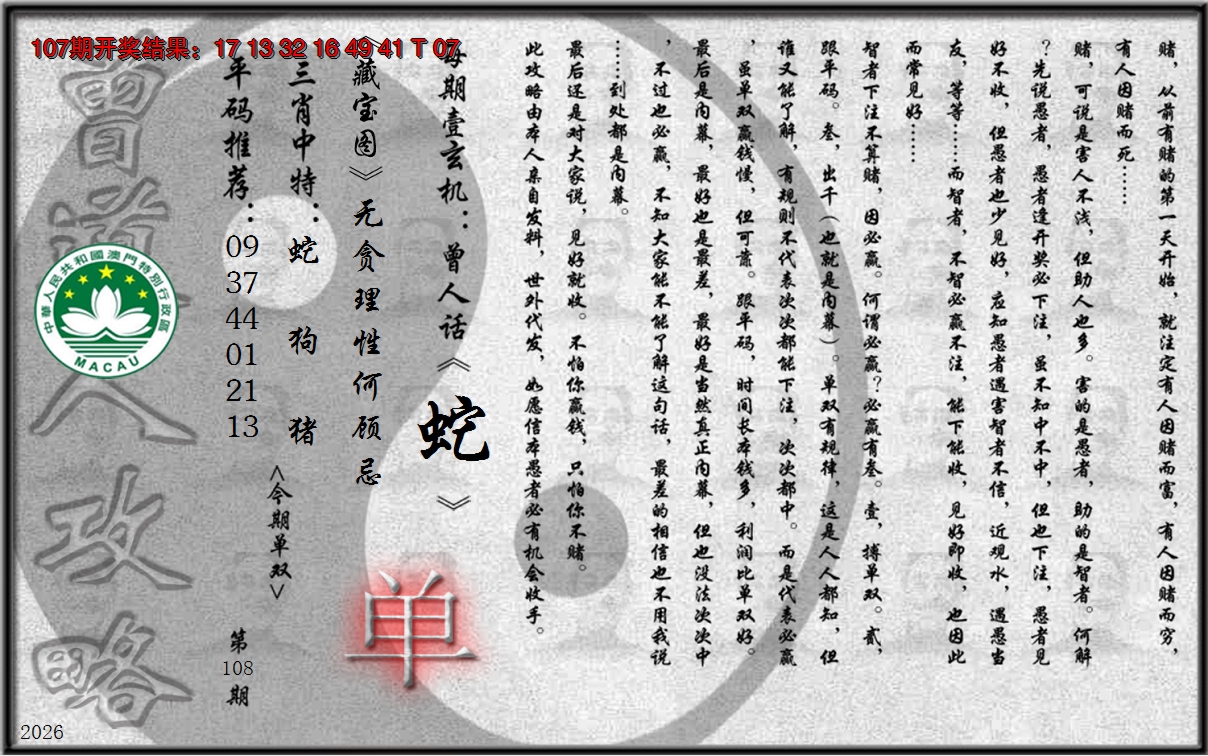 107期开奖结果：17 13 32 16 49 41 T 07
赌，从前有赌的第一天开始，就注定有人因赌而富，有人因赌而穷，
有人因赌而死……
赌，可说是害人不浅，但助人也多。害的是愚者，助的是智者。何解
？先说愚者，愚者逢开奖必下注，虽不知中不中，但也下注，愚者见
好不收，但愚者也少见好，应知愚者遇害智者不信，近观水，遇愚当
友，等等……而智者，不智必赢不注，能下能收，见好即收，也因此
而常见好……
智者下注不算赌，因必赢。何谓必赢？必赢有叁。壹，搏单双。贰，
跟平码。叁，出千（也就是内幕）。单双有规律，这是人人都知，但
谁又能了解，有规则不代表次次都能下注，次次都中。而是代表必赢
，虽单双赢钱慢，但可靠。跟平码，时间长本钱多，利润比单双好。
最后是内幕，最好也是最差，最好是当然真正内幕，但也没法次次中
，不过也必赢，不知大家能不能了解这句话，最差的相信也不用我说
……到处都是内幕。
最后还是对大家说，见好就收。不怕你赢钱，只怕你不赌。
此攻略由本人亲自发料，世外代发，如愿信本愚者必有机会收手。
每期壹玄机：曾人话《蛇》
《藏宝图》无贪理性何顾忌
单
三肖中特：蛇 狗 猪
<今期单双>
平码推荐：09 37 44 01 21 13
第108期
曾道人攻略
中華人民共和國澳門特別行政區
MACAU
2026